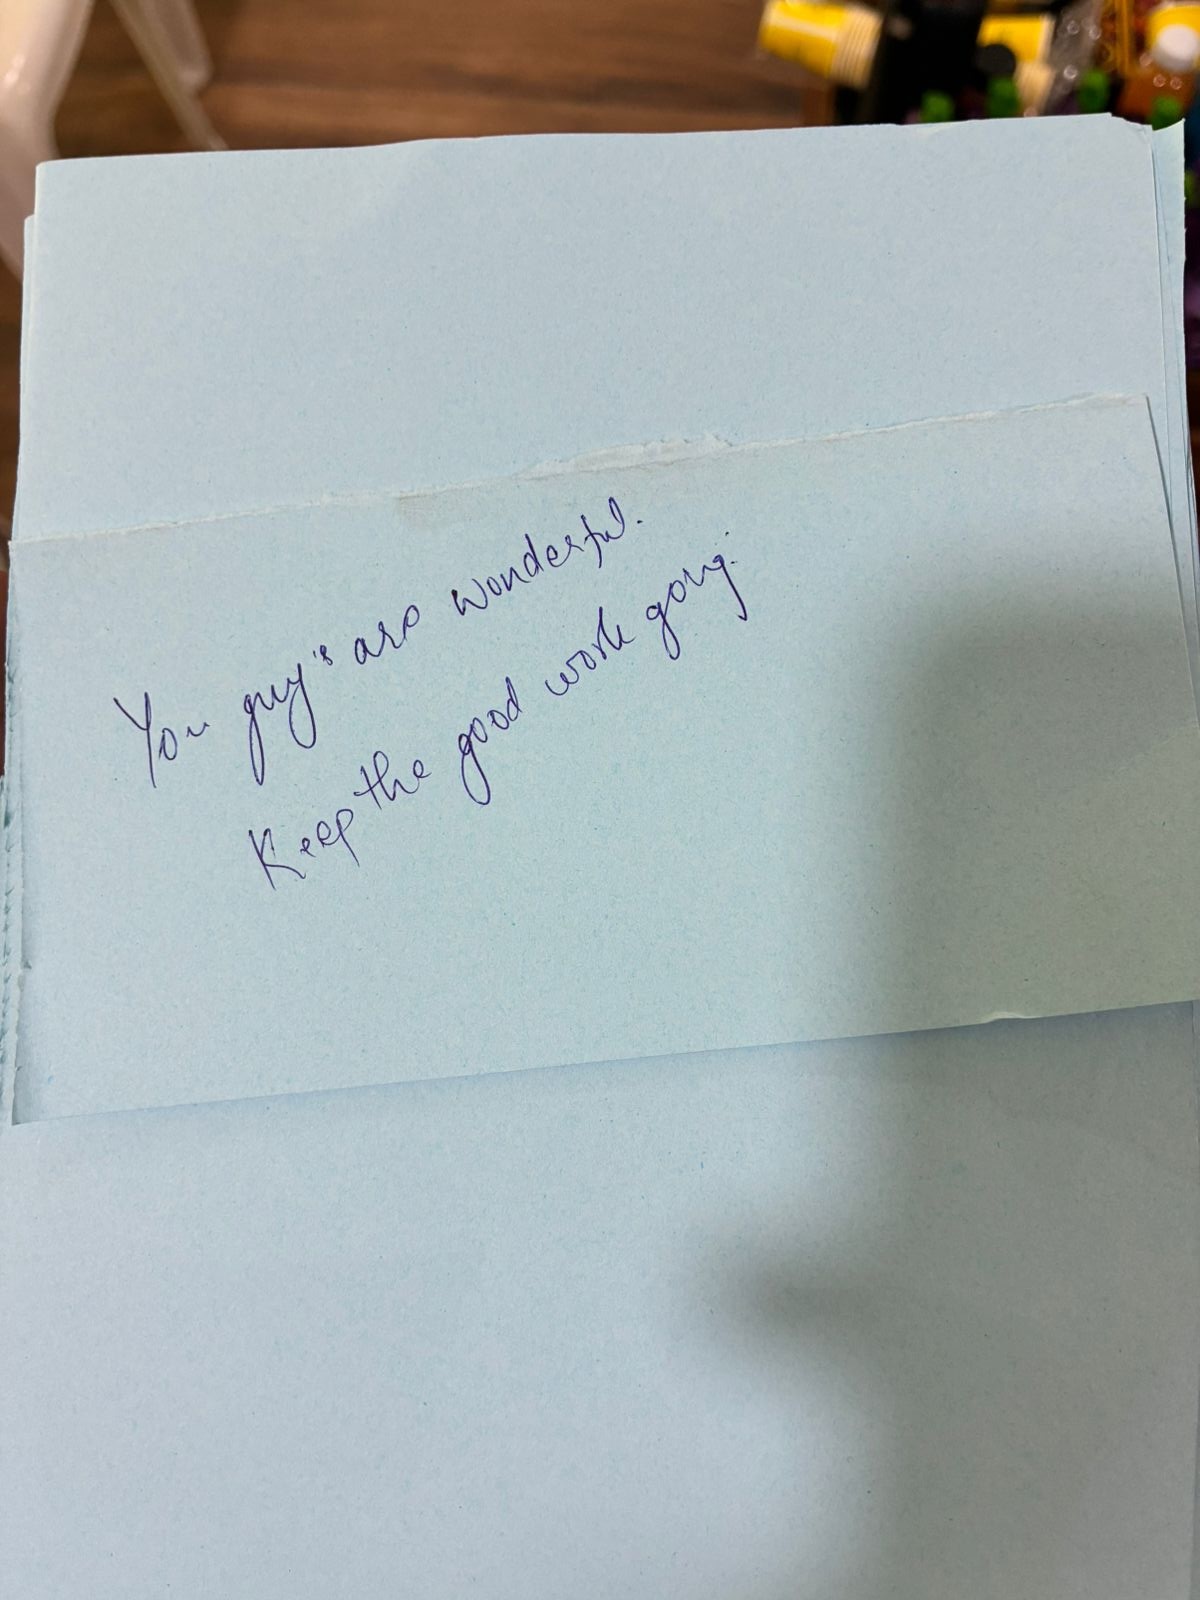 You guy's are wonderful.
Keep the good work going.